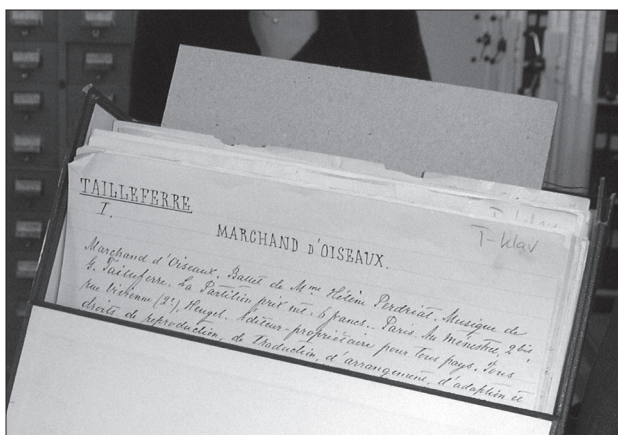 TAILLEFERRE
I.
T-klav
MARCHAND D'OISEAUX.
Marchand d'Oiseaux. Ballet de Mme Hélène Perdriat. Musique de
G. Tailleferre. La Partition prix net: 6 francs. Paris. Au Ménestrel, 2 bis
rue Vivienne (2e), Heugel. Editeur-propriétaire pour tous pays. Tous
droits de reproduction, de traduction, d'arrangement, d'adaption et